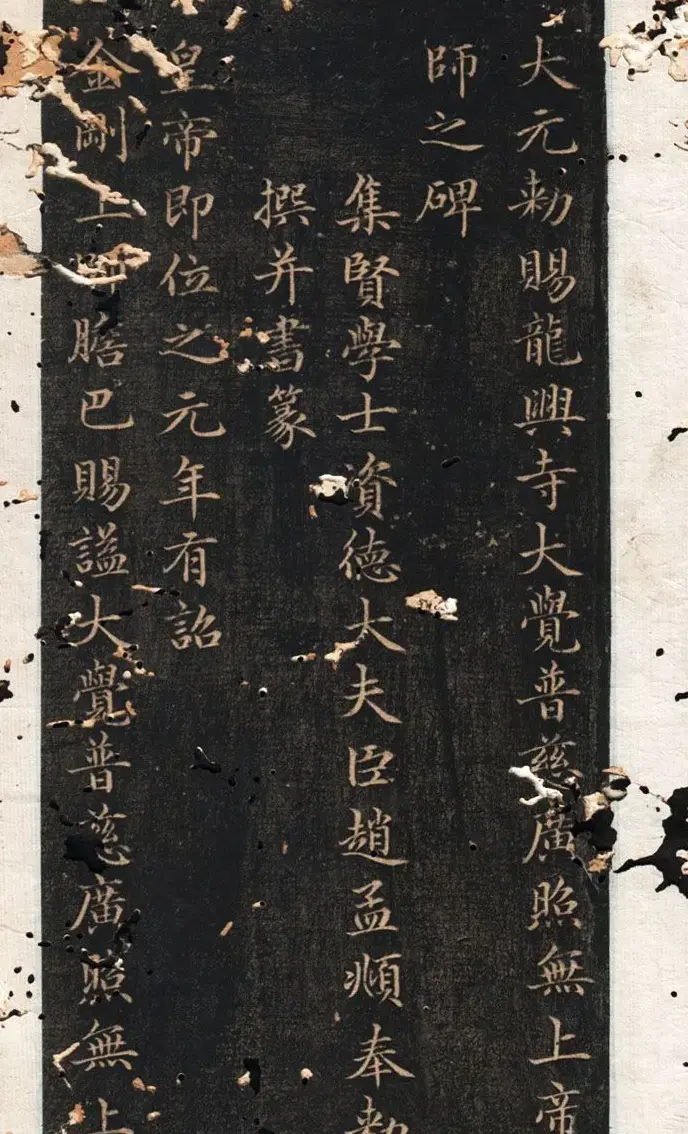 大元勅賜龍興寺大覺普慈廣照無上帝
師之碑
集賢學士資德大夫臣趙孟頫奉勅
撰并書篆
皇帝即位之元年有詔
金剛上師膽巴賜謚大覺普慈廣照無上